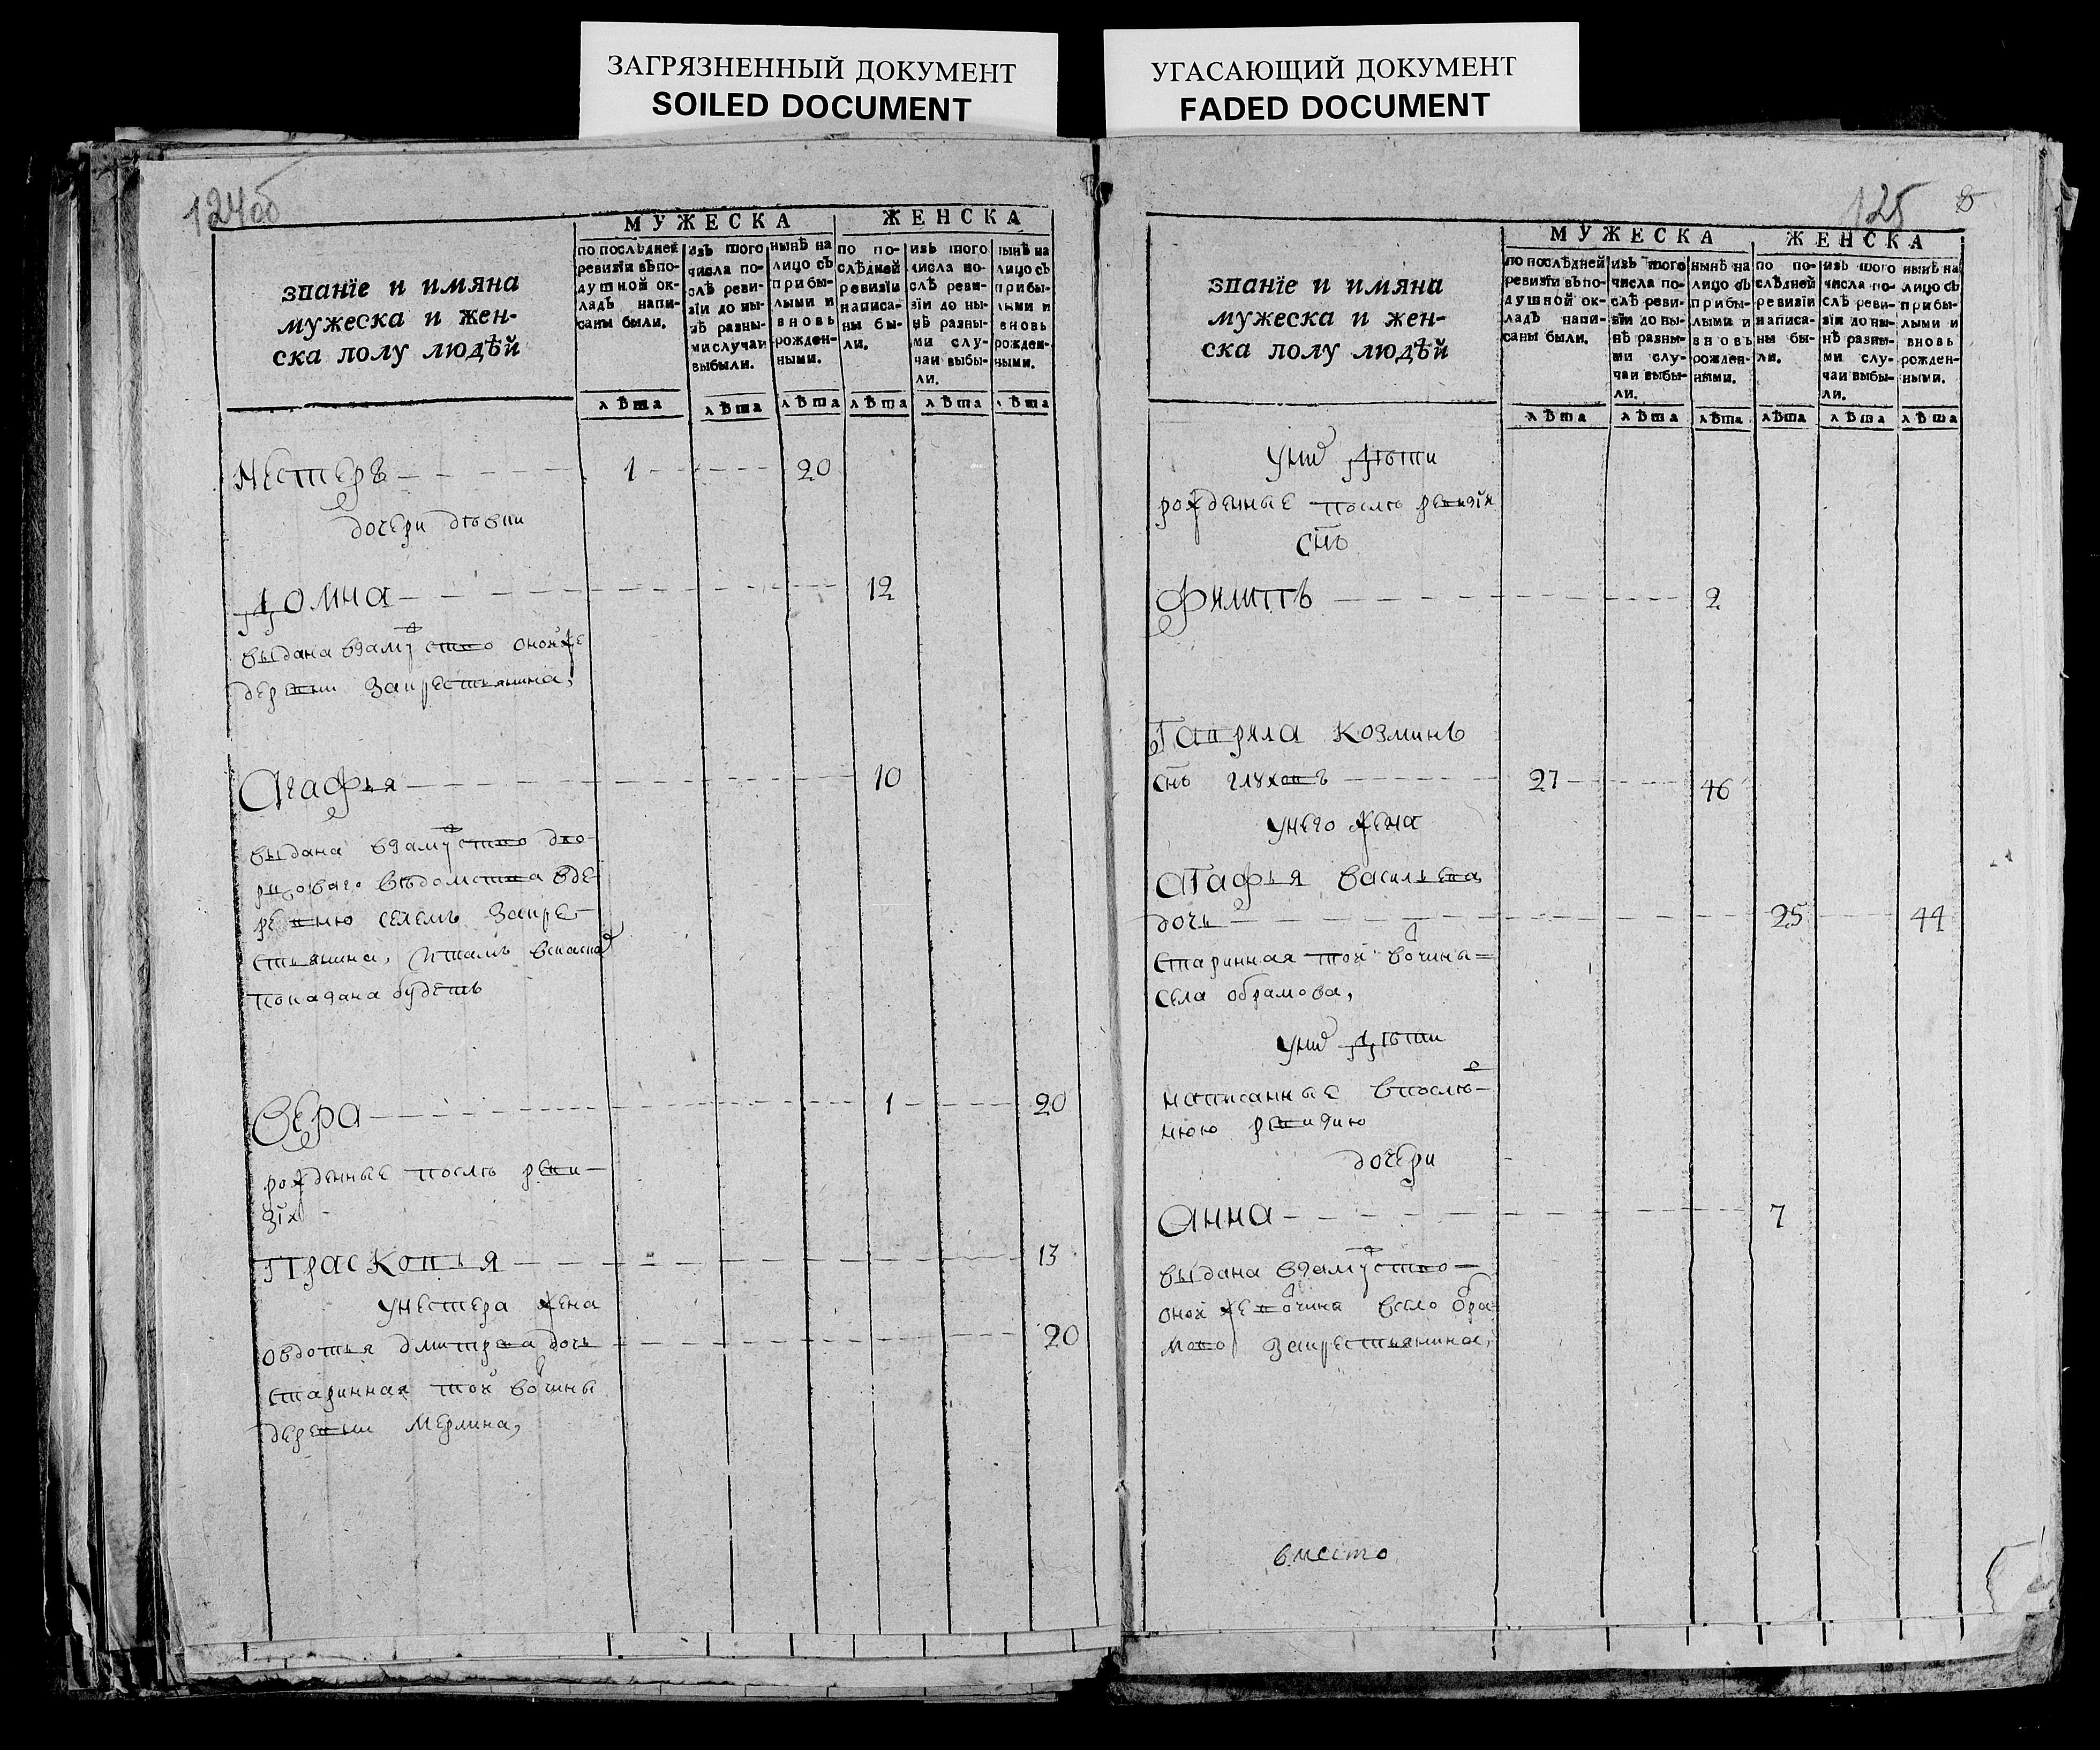 ЗАГРЯЗНЕННЫЙ ДОКУМЕНТ
SOILED DOCUMENT
УГАСАЮЩИЙ ДОКУМЕНТ
FADED DOCUMENT
124об
званїе и имяна
мужеска и жен-
ска полу людѣй
МУЖЕСКА
ЖЕНСКА
по послѣдней
ревизїи въ по-
душной ок-
ладъ напи-
саны были.
изъ того
числа по-
слѣ реви-
зїи до ны-
нѣ разны-
ми случаи
выбыли.
нынѣ на
лицо съ
прибы-
лыми и
вновь
рожден-
ными.
по по-
слѣдней
ревизїи
написа-
ны бы-
ли.
изъ того
числа по-
слѣ реви-
зїи до ны-
нѣ разны-
ми слу-
чаи выбы-
ли.
нынѣ на
лицо съ
прибы-
лыми и
вновь
рожден-
ными.
лѣта лѣта лѣта лѣта лѣта лѣта
Нестеръ 1 20
дочери дѣвки
Домна 12
выдана взамужство оной же
деревни закрестьянина,
Агафья 10
выдана взамужство дво-
рцоваго вѣдомства вде-
ревню закре-
стьянина, итамъ всказкѣ
показана будетъ
Вера 1 20
рожденные послѣ реви-
зїи
Прасковья 13
унестера жена
овдотья дмитрева дочь 20
старинная той вочины
деревни Мерлина,
125
званїе и имяна
мужеска и жен-
ска полу людѣй
МУЖЕСКА
ЖЕНСКА
по послѣдней
ревизїи въ по-
душной ок-
ладъ напи-
саны были.
изъ того
числа по-
слѣ реви-
зїи до ны-
нѣ разны-
ми слу-
чаи выбы-
ли.
нынѣ на
лицо съ
прибы-
лыми и
вновь
рожден-
ными.
по по-
слѣдней
ревизїи
написа-
ны бы-
ли.
изъ того
числа по-
слѣ реви-
зїи до ны-
нѣ разны-
ми слу-
чаи выбы-
ли.
нынѣ на
лицо съ
прибы-
лыми и
вновь
рожден-
ными.
лѣта лѣта лѣта лѣта лѣта лѣта
унихъ Дѣти
рожденные послѣ ревизїи
снъ
Филипъ 2
Гаврила козминъ
снъ глуховъ 27 46
унего жена
агафья васильева
дочь 25 44
старинная той вочины
села обрамова,
унихъ Дѣти
написанные впослѣд-
нюю ревизию
дочери
анна 7
выдана взамужство
оной же вочины всело обра-
мово закрестьянина,
вместо